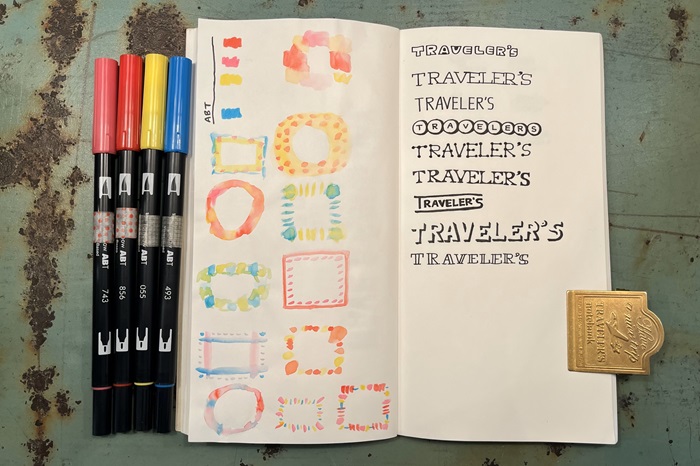 ABT
TRAVELER'S
TRAVELER'S
TRAVELER'S
TRAVELERS
TRAVELER'S
TRAVELER'S
TRAVELER'S
TRAVELER'S
TRAVELER'S
ABT
743
ABT
856
ABT
055
ABT
493
TRAVELER'S
notebook